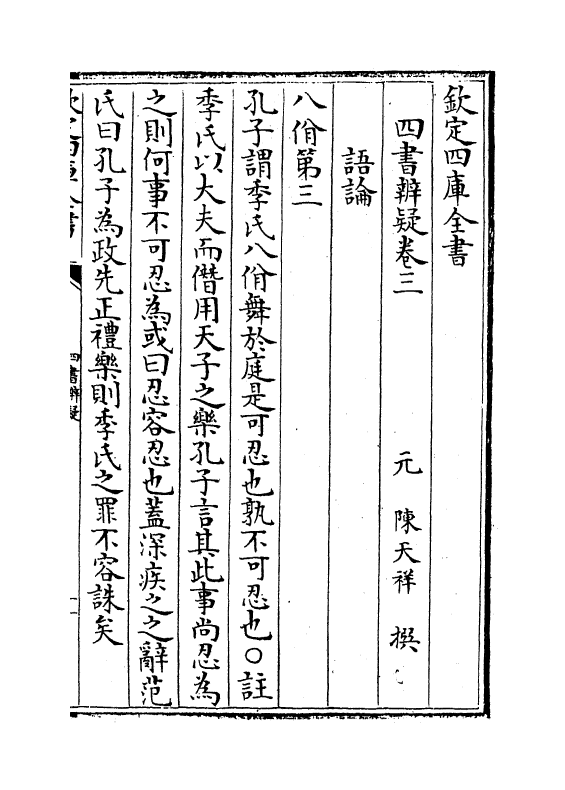 欽定四庫全書
四書辨疑卷三
元 陳天祥 撰
語論
八佾第三
孔子謂季氏八佾舞於庭是可忍也孰不可忍也○註
季氏以大夫而僭用天子之樂孔子言其此事尚忍為
之則何事不可忍為或曰忍容忍也蓋深疾之之辭范
氏曰孔子為政先正禮樂則季氏之罪不容誅矣
欽定四庫全書
四書辨疑